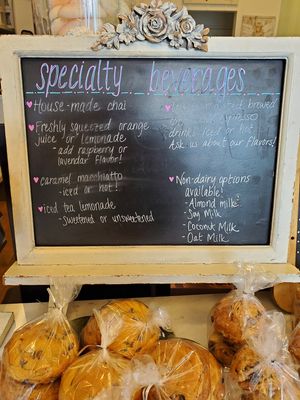 specialty beverages
House-made chai
Freshly squeezed orange
juice or Lemonade
- add raspberry or
lavendar flavor!
caramel macchiatto
- iced or hot!
iced tea lemonade
- sweetened or unsweetened
brewed
or espresso
drinks iced or hot
Ask us about our flavors!
Non-dairy options
available!
- Almond milk
- Soy Milk
- Coconut Milk
- Oat Milk